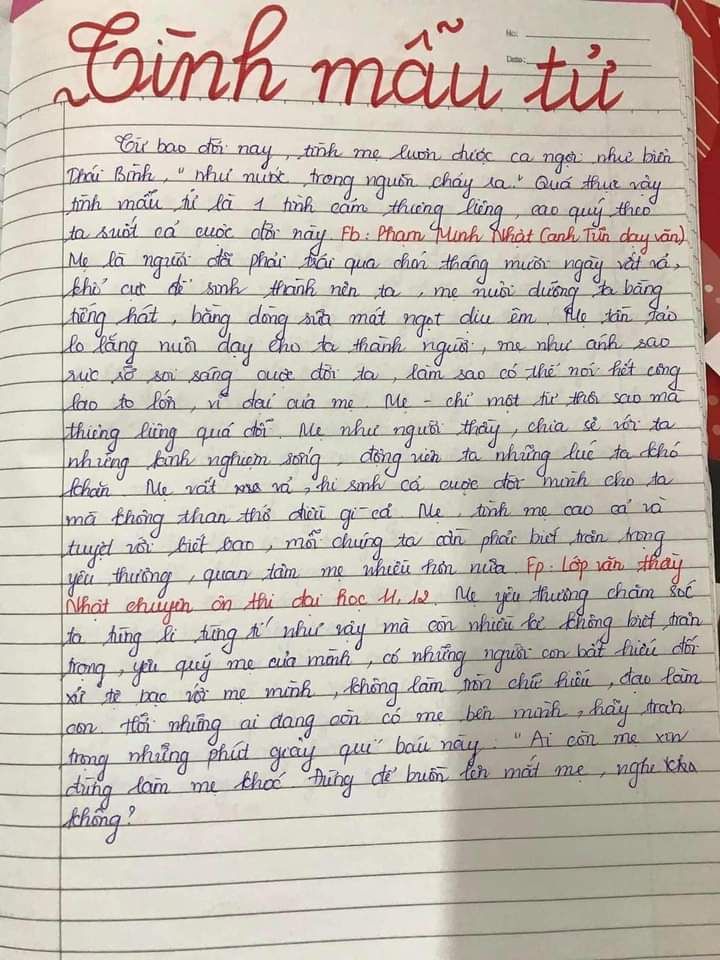 Tình mẫu tử
No:
Date:
Từ bao đời nay, tình mẹ luôn được ca ngợi như biển
Thái Bình, "như nước trong nguồn chảy ra." Quả thực vậy
tình mẫu tử là 1 tình cảm thiêng liêng, cao quý theo
ta suốt cả cuộc đời này. Fb: Phạm Minh Nhật (anh Tiến dạy văn)
Mẹ là người đã phải trải qua chín tháng mười ngày vất vả,
khổ cực để sinh thành nên ta, mẹ nuôi dưỡng ta bằng
tiếng hát, bằng dòng sữa mát ngọt dịu êm. Mẹ tần tảo
lo lắng nuôi dạy cho ta thành người, mẹ như ánh sao
rực rỡ soi sáng cuộc đời ta, làm sao có thể nói hết công
lao to lớn, vĩ đại của mẹ. Mẹ - chỉ một từ thôi sao mà
thiêng liêng quá đỗi. Mẹ như người thầy, chia sẻ với ta
những kinh nghiệm sống, động viên ta những lúc ta khó
khăn. Mẹ vất vả, hi sinh cả cuộc đời mình cho ta
mà không than thở điều gì cả. Mẹ, tình mẹ cao cả và
tuyệt vời biết bao, mỗi chúng ta cần phải biết trân trọng
yêu thương, quan tâm mẹ nhiều hơn nữa. Fp: Lớp văn thầy
Nhật chuyên ôn thi đại học 11, 12 Mẹ yêu thương chăm sóc
ta từng li từng tí như vậy mà còn nhiều kẻ không biết trân
trọng, yêu quý mẹ của mình, có những người con bất hiếu đối
xử tệ bạc với mẹ mình, không làm tròn chữ hiếu, đạo làm
con. Hỡi những ai đang còn có mẹ bên mình, hãy trân
trọng những phút giây quí báu này: "Ai còn mẹ xin
đừng làm mẹ khóc. Đừng để buồn lên mắt mẹ, nghe
không?